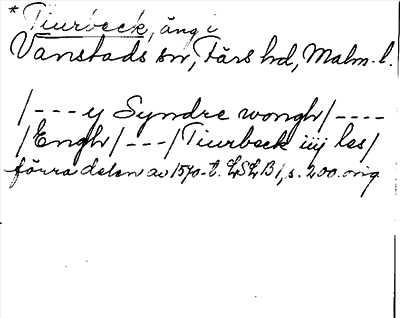 * Tiurbeck, äng i
Vanstads sn, Färs hd, Malm. l.
/--- y Syndre wongh/----
/Engh/---/Tiurbeck iiij les/
förra delen av 1570-t. LSLB 1, s. 200. orig